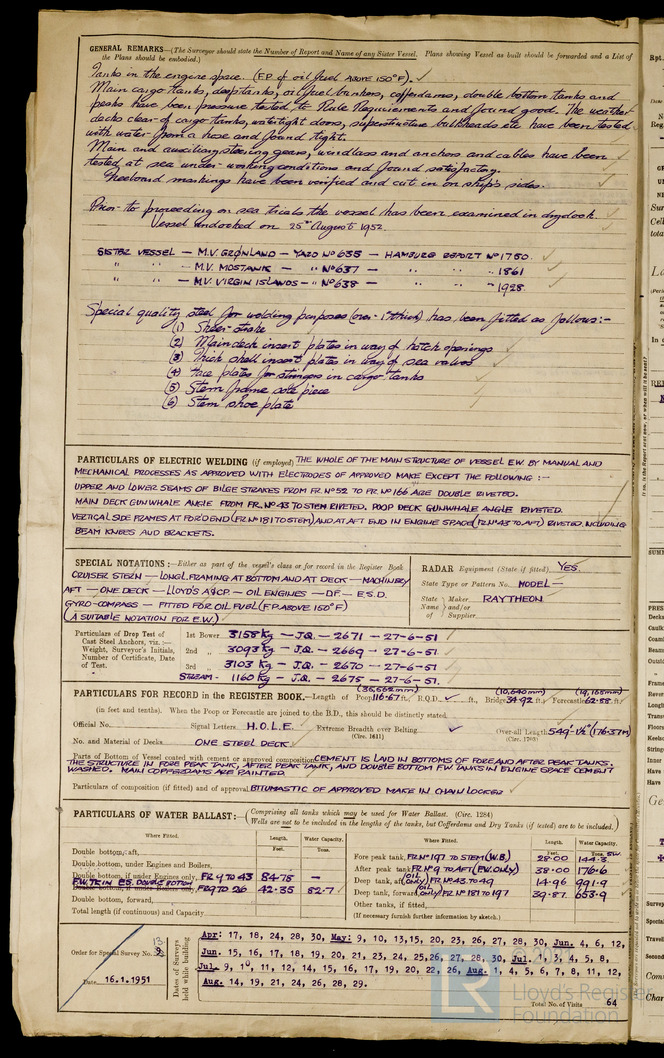 GENERAL REMARKS—(The Surveyor should state the Number of Report and Name of any Sister Vessel. Plans showing Vessel as built should be forwarded and a List of
the Plans should be embodied.)
Tanks in the engine space. (F.P. of oil fuel ABOVE 150°F). ✓
Main cargo tanks, deeptanks, oil fuel bunkers, cofferdams, double bottom tanks and
peaks have been pressure tested to Rule Requirements and found good. The weather
decks clear of cargo tanks, watertight doors, superstructure bulkheads etc have been tested
with water from a hose and found tight.
Main and auxiliary steering gears, windlass and anchors and cables have been
tested at sea under working conditions and found satisfactory.
Freeboard markings have been verified and cut in on ship's sides.
Prior to proceeding on sea trials the vessel has been examined in drydock.
Vessel undocked on 25th August 1952.
SISTER VESSEL — M.V. GRØNLAND — YARD Nº 635 — HAMBURG REPORT Nº 1750.
" " — M.V. MOSTANK — " Nº 637 — " " " 1861
" " — M.V. VIRGIN ISLANDS — " Nº 638 — " " " 1928
Special quality steel for welding purposes (over 1" thick) has been fitted as follows:-
(1) Sheer strake
(2) Main deck insert plates in way of hatch openings
(3) Thick shell insert plates in way of sea valves
(4) Face plates for stringers in cargo tanks
(5) Stern frame sole piece
(6) Stem shoe plate
PARTICULARS OF ELECTRIC WELDING (if employed) THE WHOLE OF THE MAIN STRUCTURE OF VESSEL E.W. BY MANUAL AND
MECHANICAL PROCESSES AS APPROVED WITH ELECTRODES OF APPROVED MAKE EXCEPT THE FOLLOWING :—
UPPER AND LOWER SEAMS OF BILGE STRAKES FROM FR. Nº 52 TO FR. Nº 166 ARE DOUBLE RIVETED.
MAIN DECK GUNWHALE ANGLE FROM FR. Nº 43 TO STEM RIVETED. POOP DECK GUNWHALE ANGLE RIVETED.
VERTICAL SIDE FRAMES AT FOR'D END (FR Nº 181 TO STEM) AND AT AFT END IN ENGINE SPACE (FR Nº 43 TO AFT) RIVETED, INCLUDING
BEAM KNEES AND BRACKETS.
SPECIAL NOTATIONS :—Either as part of the vessel's class or for record in the Register Book
CRUISER STERN — LONGL. FRAMING AT BOTTOM AND AT DECK — MACHINERY
AFT — ONE DECK — LLOYD'S A&CP — OIL ENGINES — D.F. — E.S.D.
GYRO-COMPASS — FITTED FOR OIL FUEL (F.P. ABOVE 150°F)
(A SUITABLE NOTATION FOR E.W.)
RADAR Equipment (State if fitted) YES.
State Type or Pattern No. MODEL —
State Name Maker and/or of Supplier RAYTHEON
Particulars of Drop Test of
Cast Steel Anchors, viz. :—
Weight, Surveyor's Initials,
Number of Certificate, Date
of Test.
1st Bower 3155 Kg — J.Q. — 2671 — 27-6-51
2nd " 3093 Kg — J.Q. — 2669 — 27-6-51
3rd " 3103 Kg — J.Q. — 2670 — 27-6-51
STREAM - 1160 Kg — J.Q. — 2675 — 27-6-51.
(10,640mm) (19,165mm)
PARTICULARS FOR RECORD in the REGISTER BOOK.—Length of Poop 116.67 ft., R.Q.D. ✓ ft., Bridge 34.92 ft., Forecastle 62.88 ft.
(in feet and tenths). When the Poop or Forecastle are joined to the B.D., this should be distinctly stated.
Official No. Signal Letters H.O.L.E. Extreme Breadth over Belting ✓ Over-all Length 549'-1½" (176.37M)
(Circ. 1611) (Circ. 1703)
No. and Material of Decks ONE STEEL DECK
Parts of Bottom of Vessel coated with cement or approved composition CEMENT IS LAID IN BOTTOMS OF FORE AND AFTER PEAK TANKS.
THE STRUCTURE IN FORE PEAK TANK, AFTER PEAK TANK, AND DOUBLE BOTTOM F.W. TANKS IN ENGINE SPACE CEMENT
WASHED. MAIN COFFERDAMS ARE PAINTED.
Particulars of composition (if fitted) and of approval BITUMASTIC OF APPROVED MAKE IN CHAIN LOCKER
PARTICULARS OF WATER BALLAST:— (Comprising all tanks which may be used for Water Ballast. (Circ. 1284)
Wells are not to be included in the lengths of the tanks, but Cofferdams and Dry Tanks (if tested) are to be included.)
Where Fitted. Length. Water Capacity.
Feet. Tons.
Double bottom, aft,
Double bottom, under Engines and Boilers,
Double bottom, if under Engines only, FR 9 TO 43 84.75 —
F.W. TK IN E.S. DOUBLE BOTTOM FR 9 TO 26 42.35 82.7
Double bottom, forward,
Total length (if continuous) and Capacity
Where Fitted. Length. Water Capacity.
Feet. Tons.
Fore peak tank, FR Nº 197 TO STEM (W.B.) 28.00 144.3 S.W.
After peak tank FR Nº 9 TO AFT (F.W. ONLY) 38.00 176.6
Deep tank, aft (OIL ONLY) FR Nº 43 TO 49 14.96 991.9
Deep tank, forward (OIL ONLY) FR Nº 181 TO 197 39.87 653.9
Other tanks, if fitted,
(If necessary furnish further information by sketch.)
Order for Special Survey No.
Date 16.1.1951
Dates of Surveys held while building
Apr: 17, 18, 24, 28, 30, May: 9, 10, 13,15, 20, 23, 26, 27, 28, 30, Jun. 4, 6, 12,
Jun. 15, 16, 17, 18, 19, 20, 21, 23, 24, 25,26, 27, 28, 30, Jul. 2, 3, 4, 5, 8,
Jul. 9, 10, 11, 12, 14, 15, 16, 17, 19, 20, 22, 26, Aug. 1, 4, 5, 6, 7, 8, 11, 12,
Aug. 14, 19, 21, 24, 26, 28, 29.
Total No. of Visits 64
LR
Lloyd's Register
Foundation